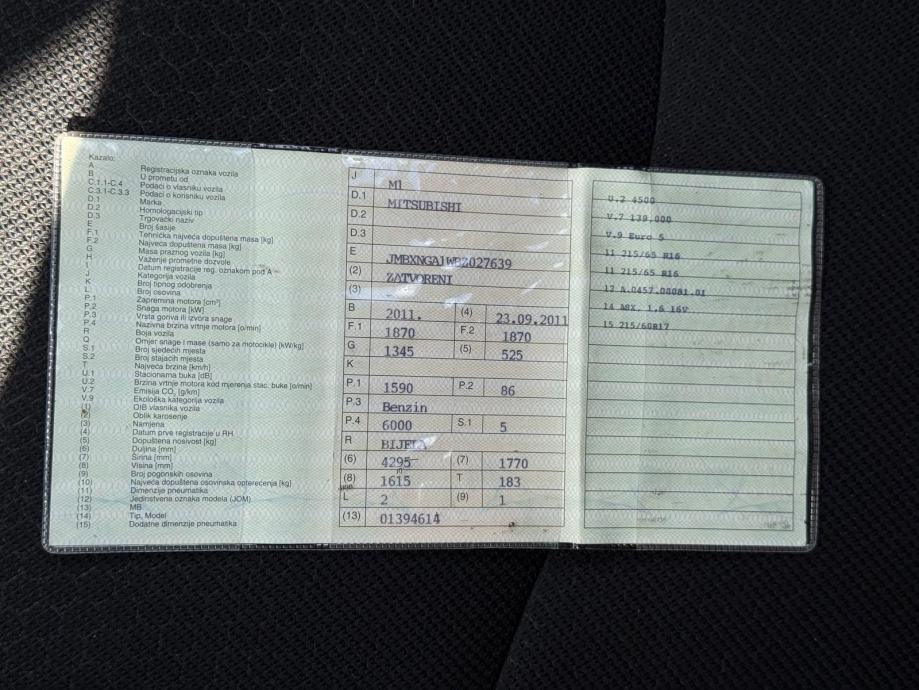 Kazalo:
A Registracijska oznaka vozila
B U prometu od
C.1.1-C.4 Podaci o vlasniku vozila
C.3.1-C.3.3 Podaci o korisniku vozila
D.1 Marka
D.2 Homologacijski tip
D.3 Trgovački naziv
E Broj šasije
F.1 Tehnička najveća dopuštena masa [kg]
F.2 Najveća dopuštena masa [kg]
G Masa praznog vozila [kg]
H Važenje prometne dozvole
I Datum registracije reg. oznakom pod A
J Kategorija vozila
K Broj tipnog odobrenja
L Broj osovina
P.1 Zapremina motora [cm³]
P.2 Snaga motora [kW]
P.3 Vrsta goriva ili izvora snage
P.4 Nazivna brzina vrtnje motora [o/min]
R Boja vozila
Q Omjer snage i mase (samo za motocikle) [kW/kg]
S.1 Broj sjedećih mjesta
S.2 Broj stajaćih mjesta
T Najveća brzina [km/h]
U.1 Stacionarna buka [dB]
U.2 Brzina vrtnje motora kod mjerenja stac. buke [o/min]
V.7 Emisija CO₂ [g/km]
V.9 Ekološka kategorija vozila
(1) OIB vlasnika vozila
(2) Oblik karoserije
(3) Namjena
(4) Datum prve registracije u RH
(5) Dopuštena nosivost [kg]
(6) Duljina [mm]
(7) Širina [mm]
(8) Visina [mm]
(9) Broj pogonskih osovina
(10) Najveća dopuštena osovinska opterećenja [kg]
(11) Dimenzije pneumatika
(12) Jedinstvena oznaka modela (JOM)
(13) MB
(14) Tip, Model
(15) Dodatne dimenzije pneumatika
J M1
D.1 MITSUBISHI
D.2
D.3
E JMBXNGA1WBZ027639
(2) ZATVORENI
(3)
B 2011. (4) 23.09.2011
F.1 1870 F.2 1870
G 1345 (5) 525
K
P.1 1590 P.2 86
P.3 Benzin
P.4 6000 S.1 5
R BIJELA
(6) 4295 (7) 1770
(8) 1615 T 183
L 2 (9) 1
(13) 01394614
U.2 4500
V.7 139,000
V.9 Euro 5
11 215/65 R16
11 215/65 R16
12 A.0457.00081.01
14 ASX, 1,6 16V
15 215/60R17